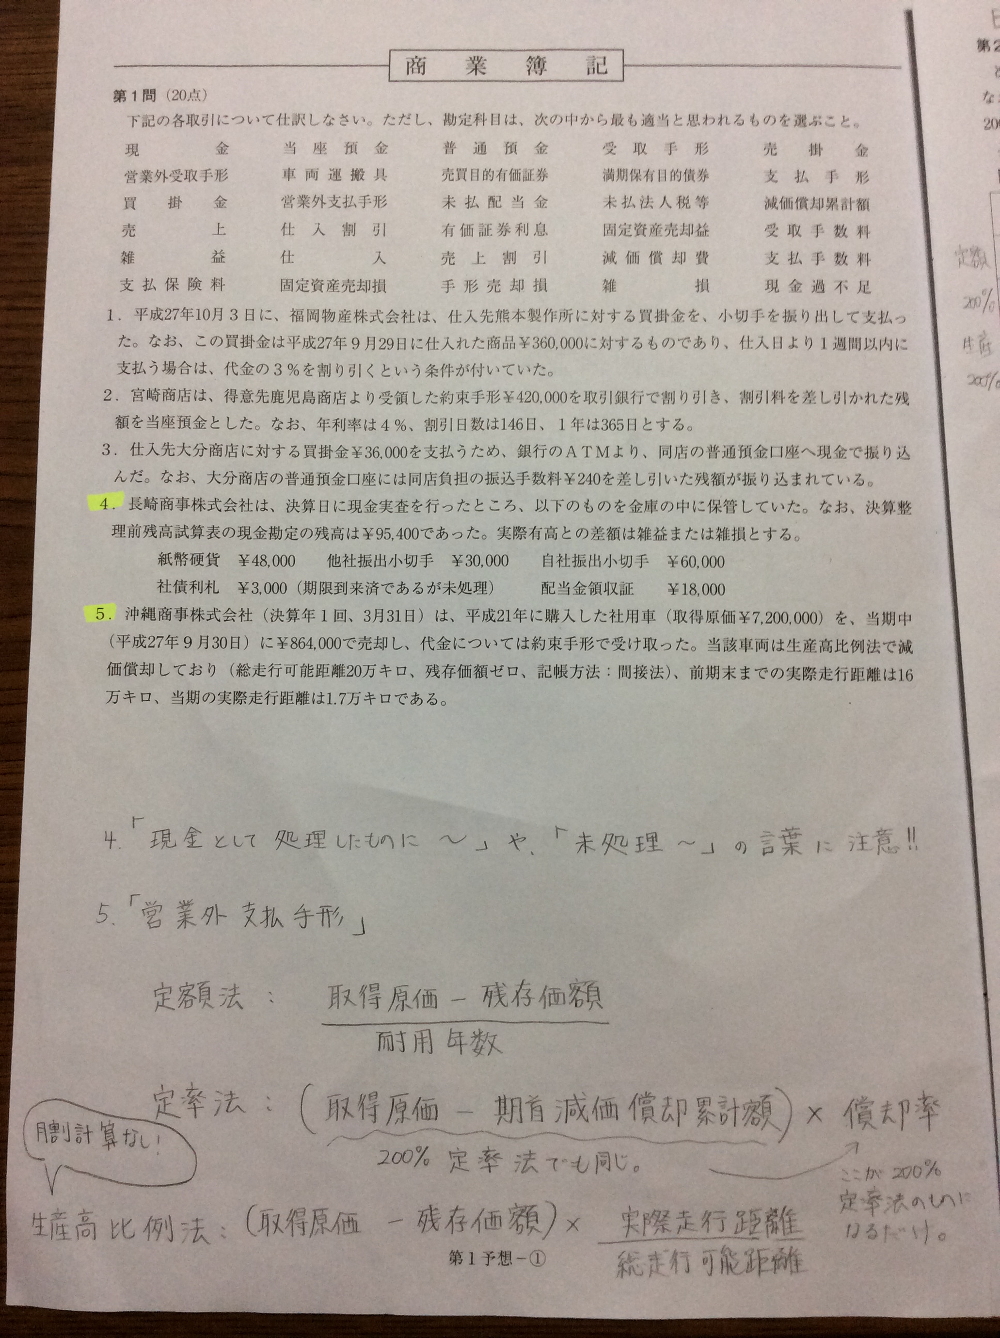 商業簿記
第1問（20点）
下記の各取引について仕訳しなさい。ただし、勘定科目は、次の中から最も適当と思われるものを選ぶこと。
現金 当座預金 普通預金 受取手形 売掛金
営業外受取手形 車両運搬具 売買目的有価証券 満期保有目的債券 支払手形
買掛金 営業外支払手形 未払配当金 未払法人税等 減価償却累計額
売上 仕入割引 有価証券利息 固定資産売却益 受取手数料
雑益 仕入 売上割引 減価償却費 支払手数料
支払保険料 固定資産売却損 手形売却損 雑損 現金過不足
1．平成27年10月3日に、福岡物産株式会社は、仕入先熊本製作所に対する買掛金を、小切手を振り出して支払っ
た。なお、この買掛金は平成27年9月29日に仕入れた商品¥360,000に対するものであり、仕入日より1週間以内に
支払う場合は、代金の3％を割り引くという条件が付いていた。
2．宮崎商店は、得意先鹿児島商店より受領した約束手形¥420,000を取引銀行で割り引き、割引料を差し引かれた残
額を当座預金とした。なお、年利率は4％、割引日数は146日、1年は365日とする。
3．仕入先大分商店に対する買掛金¥36,000を支払うため、銀行のATMより、同店の普通預金口座へ現金で振り込
んだ。なお、大分商店の普通預金口座には同店負担の振込手数料¥240を差し引いた残額が振り込まれている。
4．長崎商事株式会社は、決算日に現金実査を行ったところ、以下のものを金庫の中に保管していた。なお、決算整
理前残高試算表の現金勘定の残高は¥95,400であった。実際有高との差額は雑益または雑損とする。
紙幣硬貨 ¥48,000 他社振出小切手 ¥30,000 自社振出小切手 ¥60,000
社債利札 ¥3,000（期限到来済であるが未処理） 配当金領収証 ¥18,000
5．沖縄商事株式会社（決算年1回、3月31日）は、平成21年に購入した社用車（取得原価¥7,200,000）を、当期中
（平成27年9月30日）に¥864,000で売却し、代金については約束手形で受け取った。当該車両は生産高比例法で減
価償却しており（総走行可能距離20万キロ、残存価額ゼロ、記帳方法：間接法）、前期末までの実際走行距離は16
万キロ、当期の実際走行距離は1.7万キロである。
4.「現金として処理したものに～」や、「未処理～」の言葉に注意!!
5.「営業外支払手形」
定額法： 取得原価－残存価額
耐用年数
定率法：（取得原価－期首減価償却累計額）× 償却率
200％定率法でも同じ。
ここが200％
定率法のものに
なるだけ。
月割計算なし!
生産高比例法：（取得原価－残存価額）× 実際走行距離
総走行可能距離
第1予想－①
第2
200
定額
200％
生産
200％